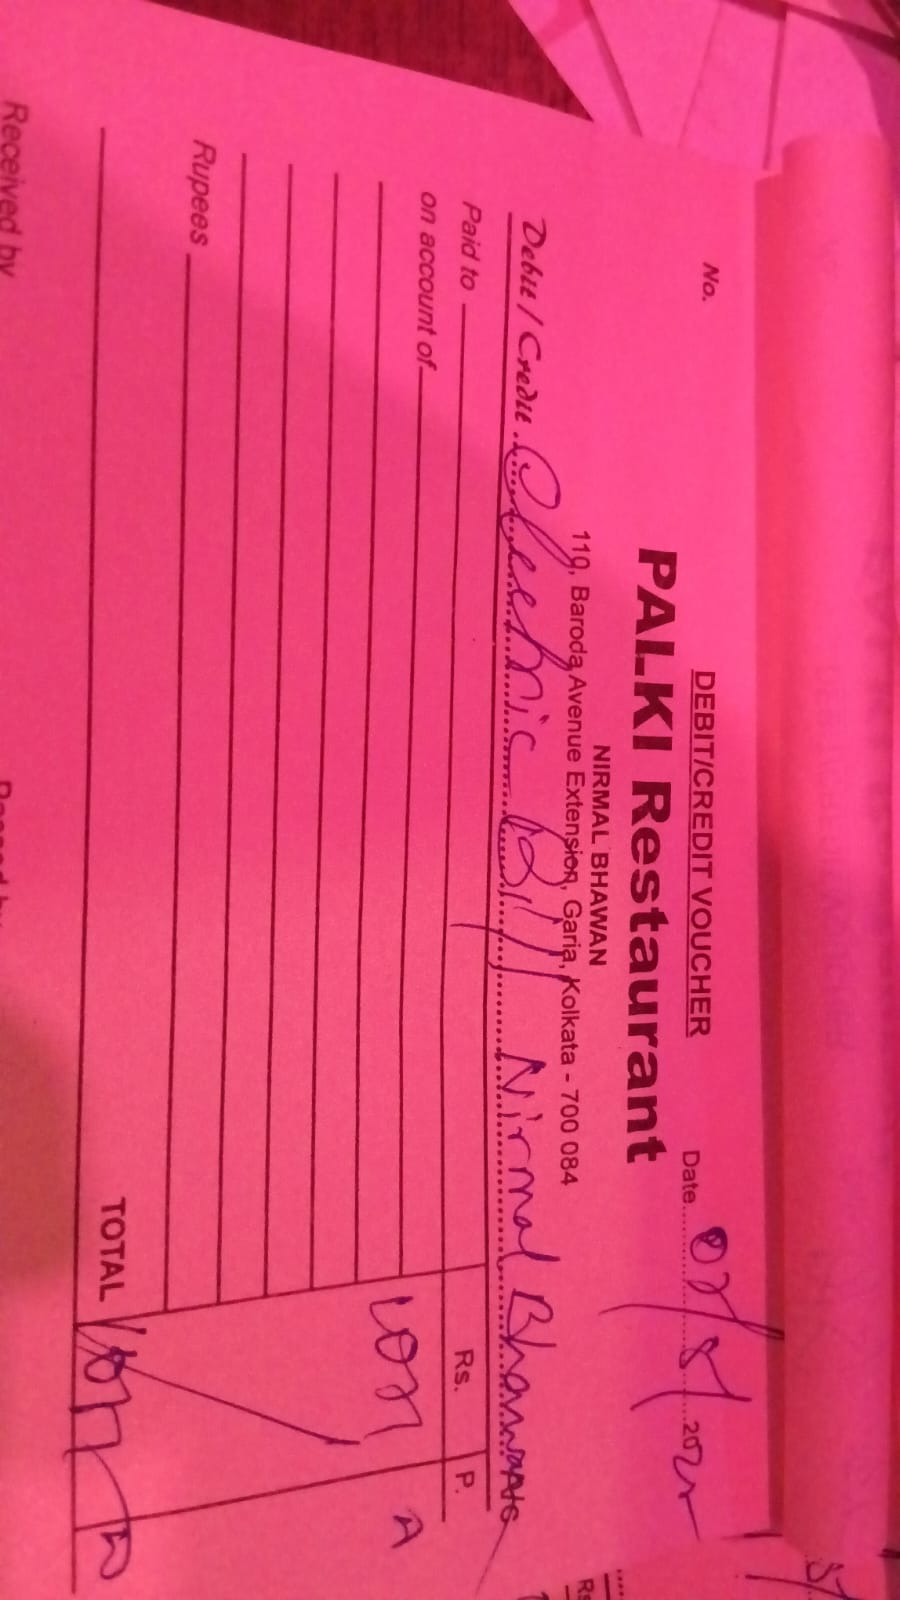 No.
DEBIT/CREDIT VOUCHER
Date
PALKI Restaurant
NIRMAL BHAWAN
110, Baroda Avenue Extension, Garia, Kolkata - 700 084
Debit / Credit Electric Bill Nirmal Bhawan
Paid to
Rs. P.
on account of
Rupees
TOTAL
Received by